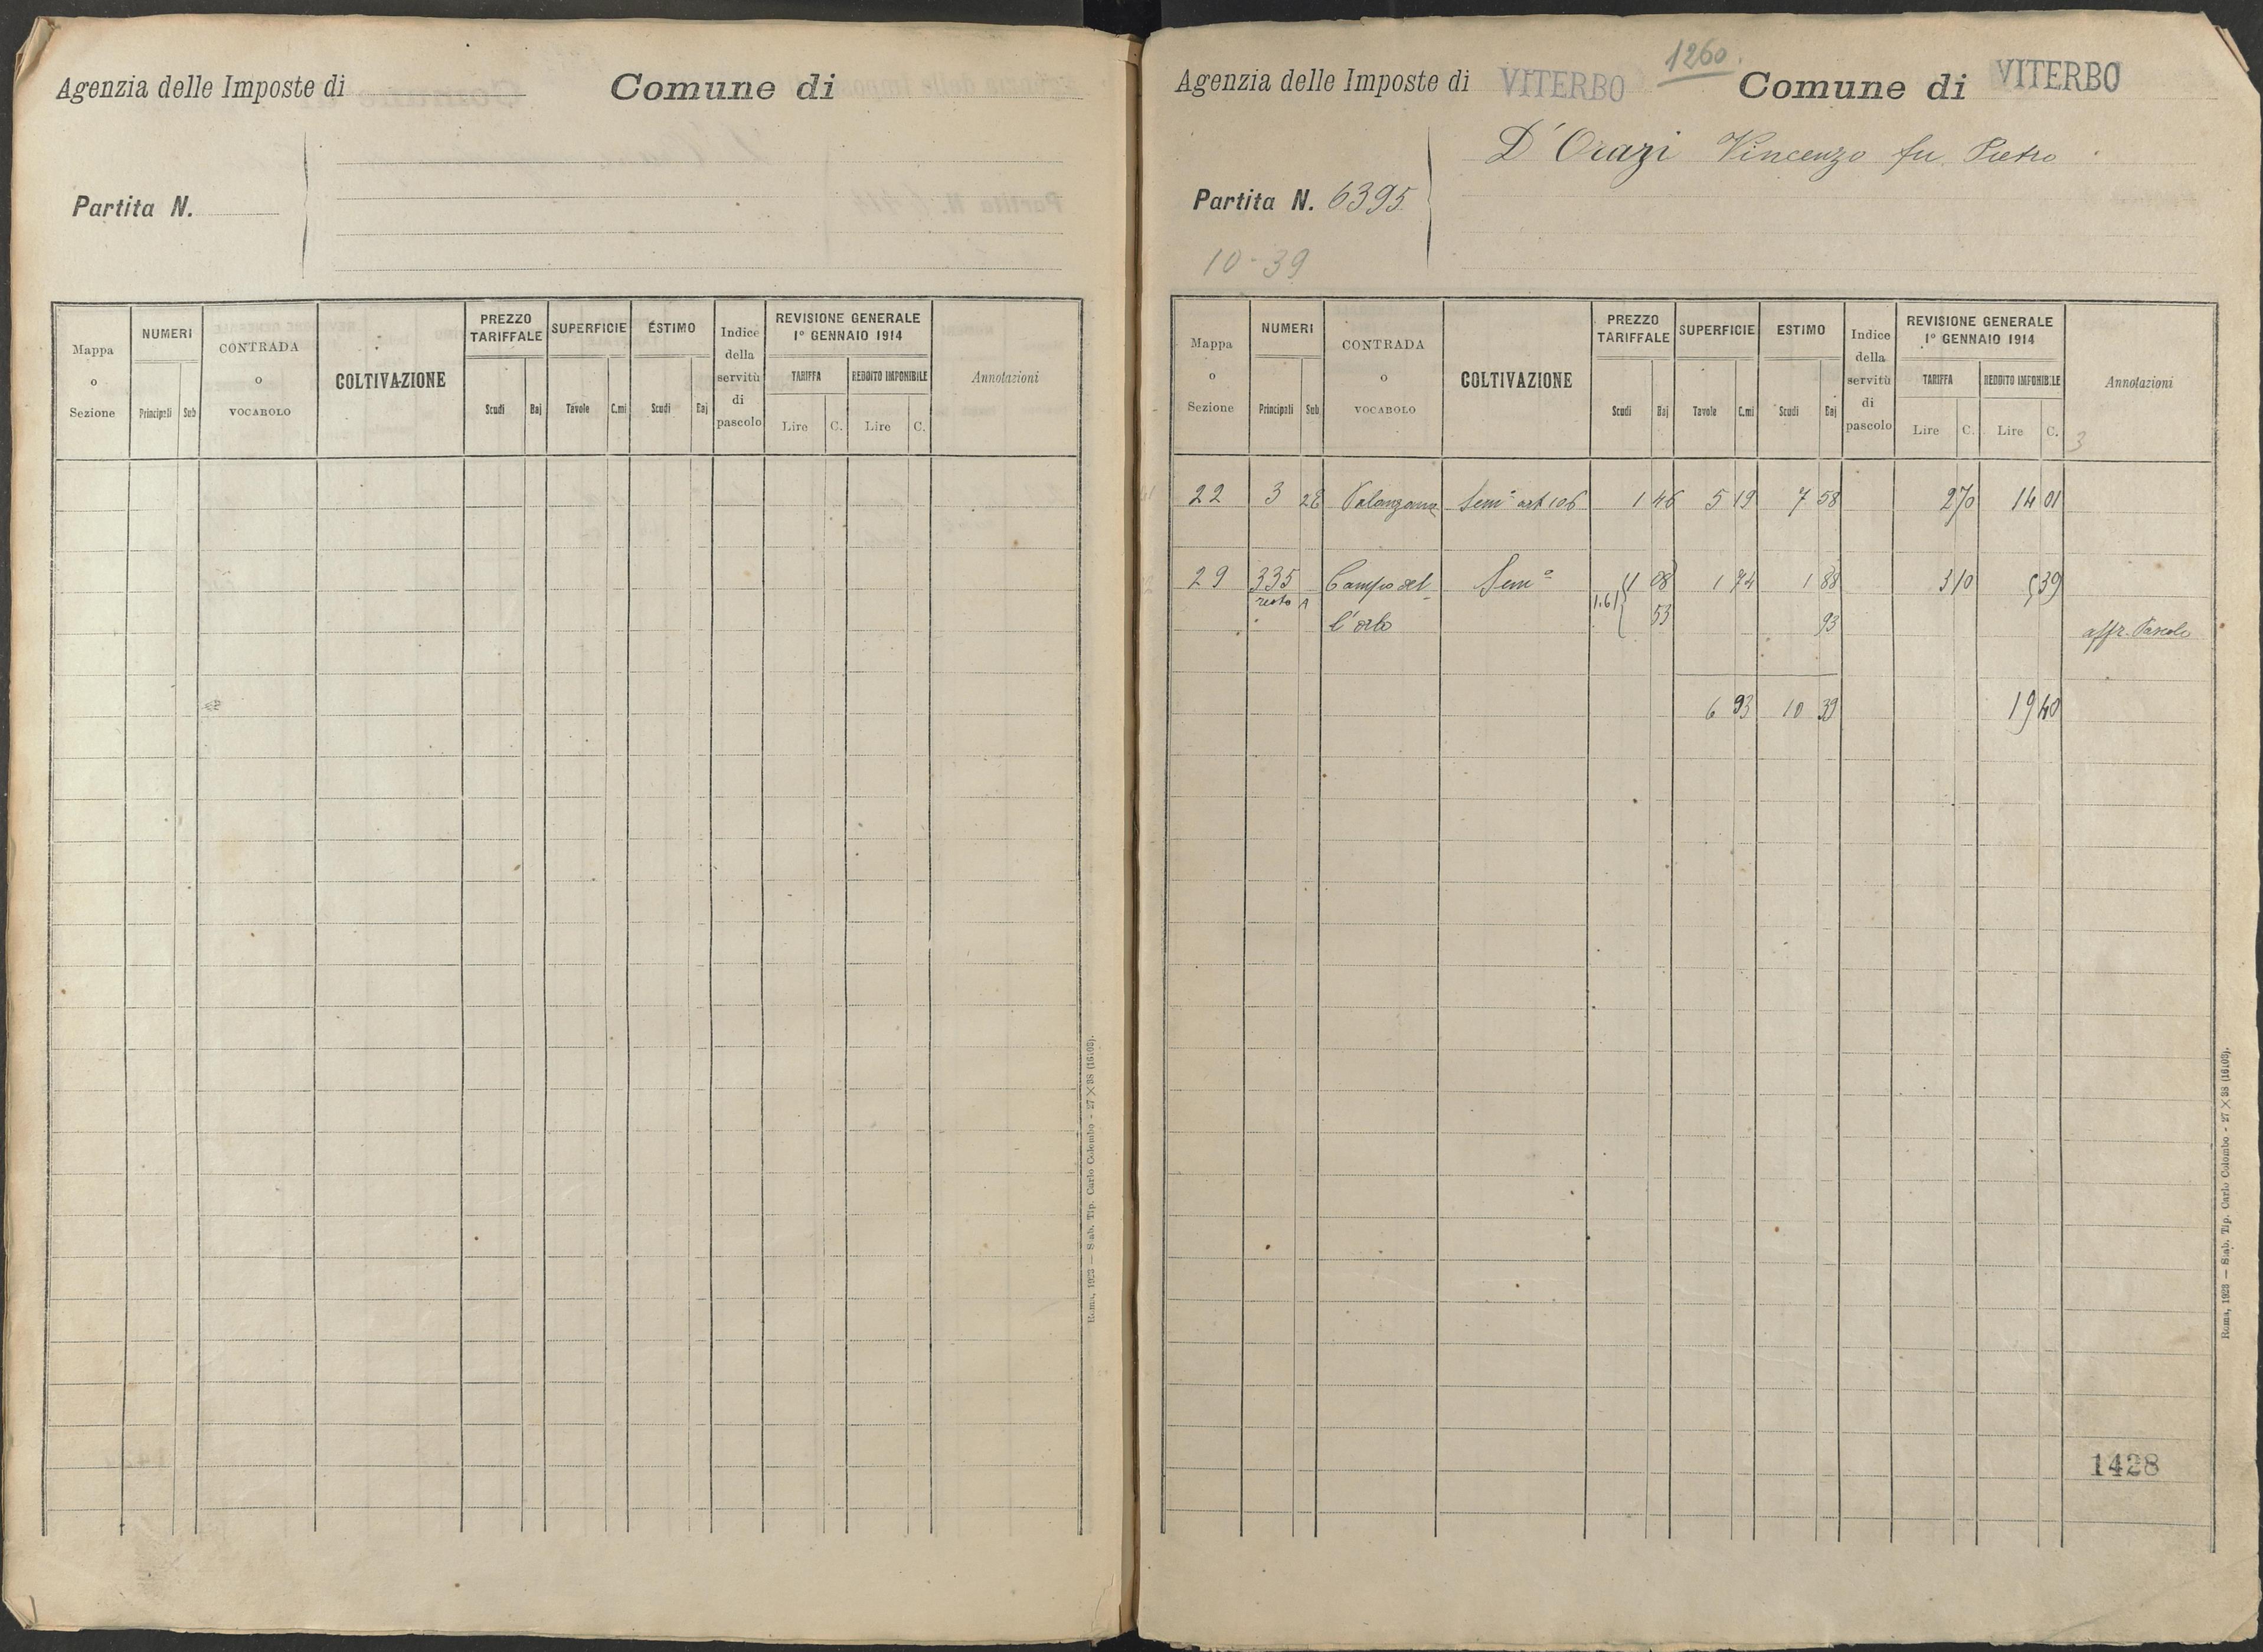 Agenzia delle Imposte di
Comune di
Partita N.
Mappa o Sezione
NUMERI
Principali Sub
CONTRADA o VOCABOLO
COLTIVAZIONE
PREZZO TARIFFALE
Scudi Baj
SUPERFICIE
Tavole C.mi
ESTIMO
Scudi Baj
Indice della servitù di pascolo
REVISIONE GENERALE
1° GENNAIO 1914
TARIFFA
Lire C.
REDDITO IMPONIBILE
Lire C.
Annotazioni
Roma, 1923 — Stab. Tip. Carlo Colombo - 27 × 38 (16103).
1260.
Agenzia delle Imposte di VITERBO
Comune di VITERBO
D'Orazi Vincenzo fu Pietro
Partita N. 6395
10-39
Mappa o Sezione
NUMERI
Principali Sub
CONTRADA o VOCABOLO
COLTIVAZIONE
PREZZO TARIFFALE
Scudi Baj
SUPERFICIE
Tavole C.mi
ESTIMO
Scudi Baj
Indice della servitù di pascolo
REVISIONE GENERALE
1° GENNAIO 1914
TARIFFA
Lire C.
REDDITO IMPONIBILE
Lire C.
Annotazioni
3
22 3 28 Palanzana Sem° art 106 1 46 5 19 7 58 2 70 14 01
29 335 Campo del- Sem° 1 08 1 74 1 88 3 10 5 39
resto A 1.61
l'orto 53 93 affr. Pascolo
6 93 10 39 19 40
1428
Roma, 1923 — Stab. Tip. Carlo Colombo - 27 × 38 (16103).